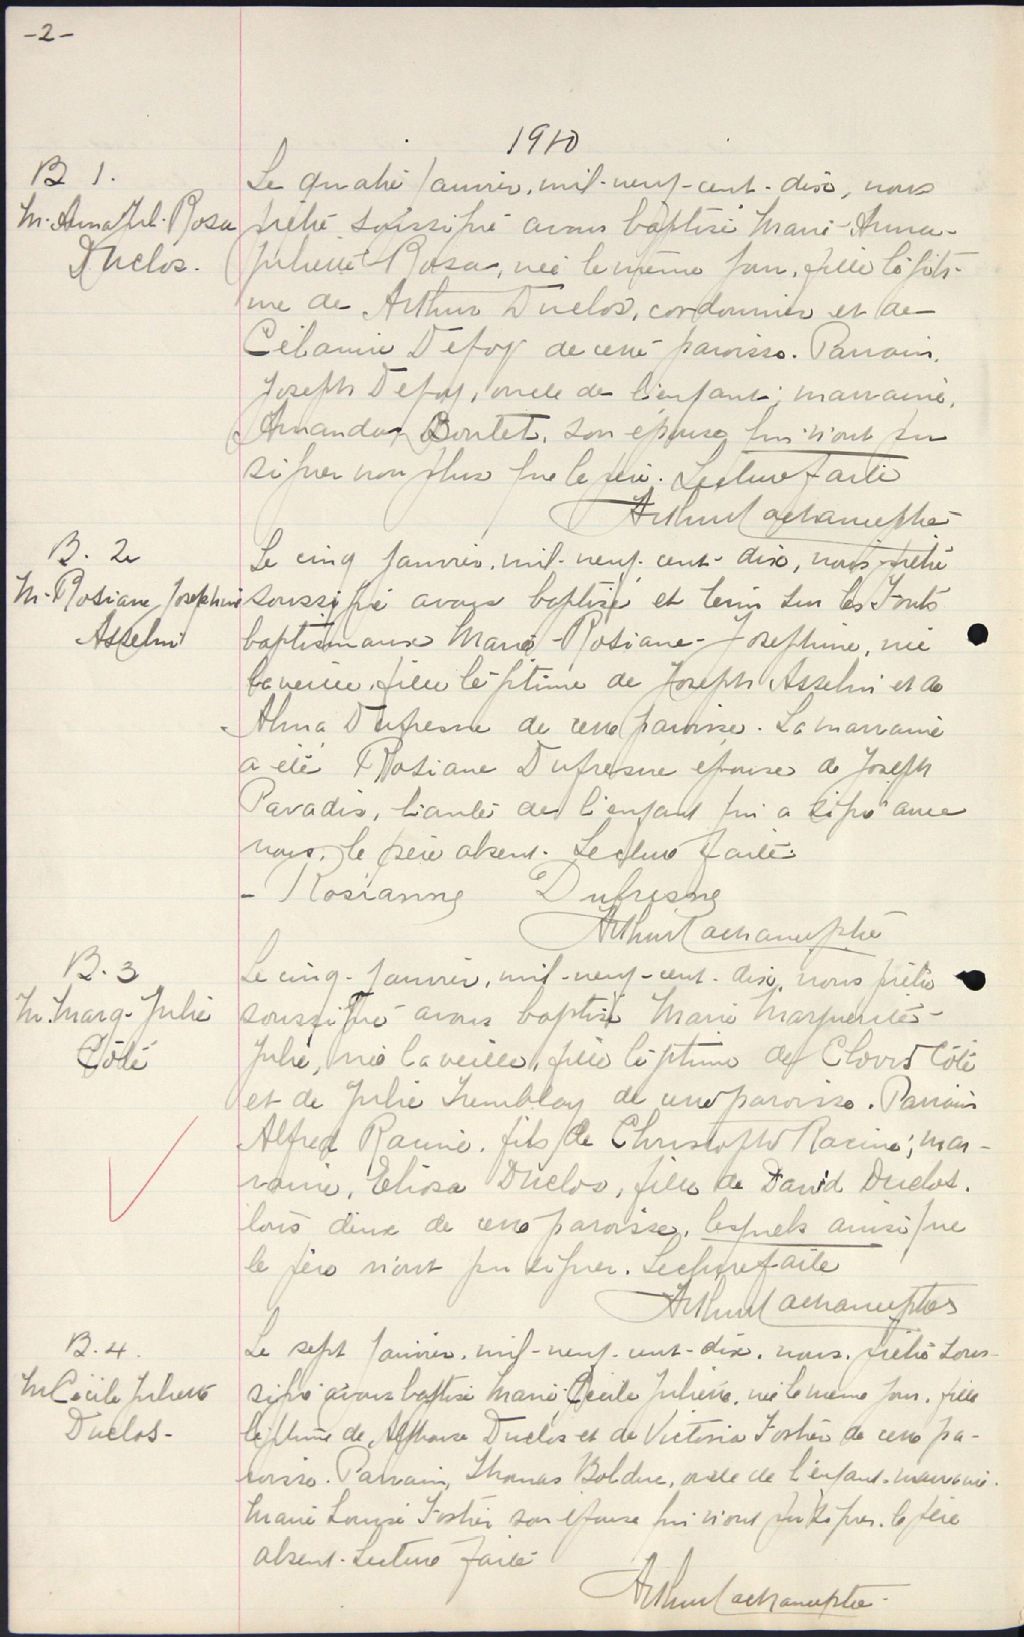 -2-
1910
B 1.
M. Anna Jul. Rosa
Duclos.
Le quatre janvier, mil-neuf-cent-dix, nous
prêtre soussigné avons baptisé Marie-Anna-
Juliette-Rosa, née le même jour, fille légiti-
me de Arthur Duclos, cordonnier et de
Célanire Defoy de cette paroisse. Parrain,
Joseph Defoy, oncle de l'enfant; marraine,
Amanda Boutet, son épouse qui n'ont su
signer non plus que le père. Lecture faite
Arthur Lachance ptre
B. 2
M. Rosiane Josephine
Asselin
Le cinq janvier, mil-neuf-cent-dix, nous prêtre
soussigné avons baptisé et tenu sur les Fonts
baptismaux Marie-Rosiane-Josephine, née
la veille, fille légitime de Joseph Asselin et de
Alma Dufresne de cette paroisse. La marraine
a été Rosiane Dufresne épouse de Joseph
Paradis, tante de l'enfant qui a signé avec
nous, le père absent. Lecture faite
- Rosianne Dufresne
Arthur Lachance ptre
B. 3
M. Marg-Julie
Côté
Le cinq-janvier, mil-neuf-cent-dix, nous prêtre
soussigné avons baptisé Marie Marguerite-
Julie, née la veille, fille légitime de Clovis Côté
et de Julie Tremblay de cette paroisse. Parrain
Alfred Racine, fils de Christophe Racine; mar-
raine, Eliosa Duclos, fille de David Duclos.
tous deux de cette paroisse, lesquels ainsi que
le père n'ont pu signer. Lecture faite
Arthur Lachance ptre
B. 4.
M Cécile Juliette
Duclos-
Le sept janvier, mil-neuf-cent-dix, nous, prêtre sous-
signé avons baptisé Marie Cécile Juliette, née le même jour, fille
légitime de Alphonse Duclos et de Victoria Fortier de cette pa-
roisse. Parrain, Thomas Bolduc, oncle de l'enfant-marraine.
Marie Louise Fortier son épouse qui n'ont pu signer. le père
absent. Lecture faite
Arthur Lachance ptre